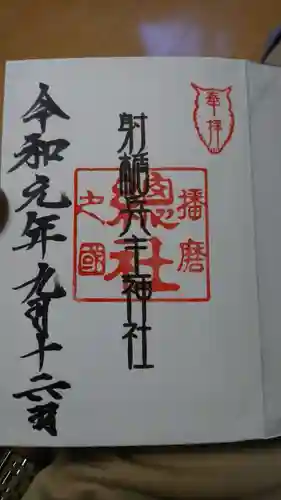 奉拝
射楯兵主神社
播磨
總社
之國
令和元年九月十六日